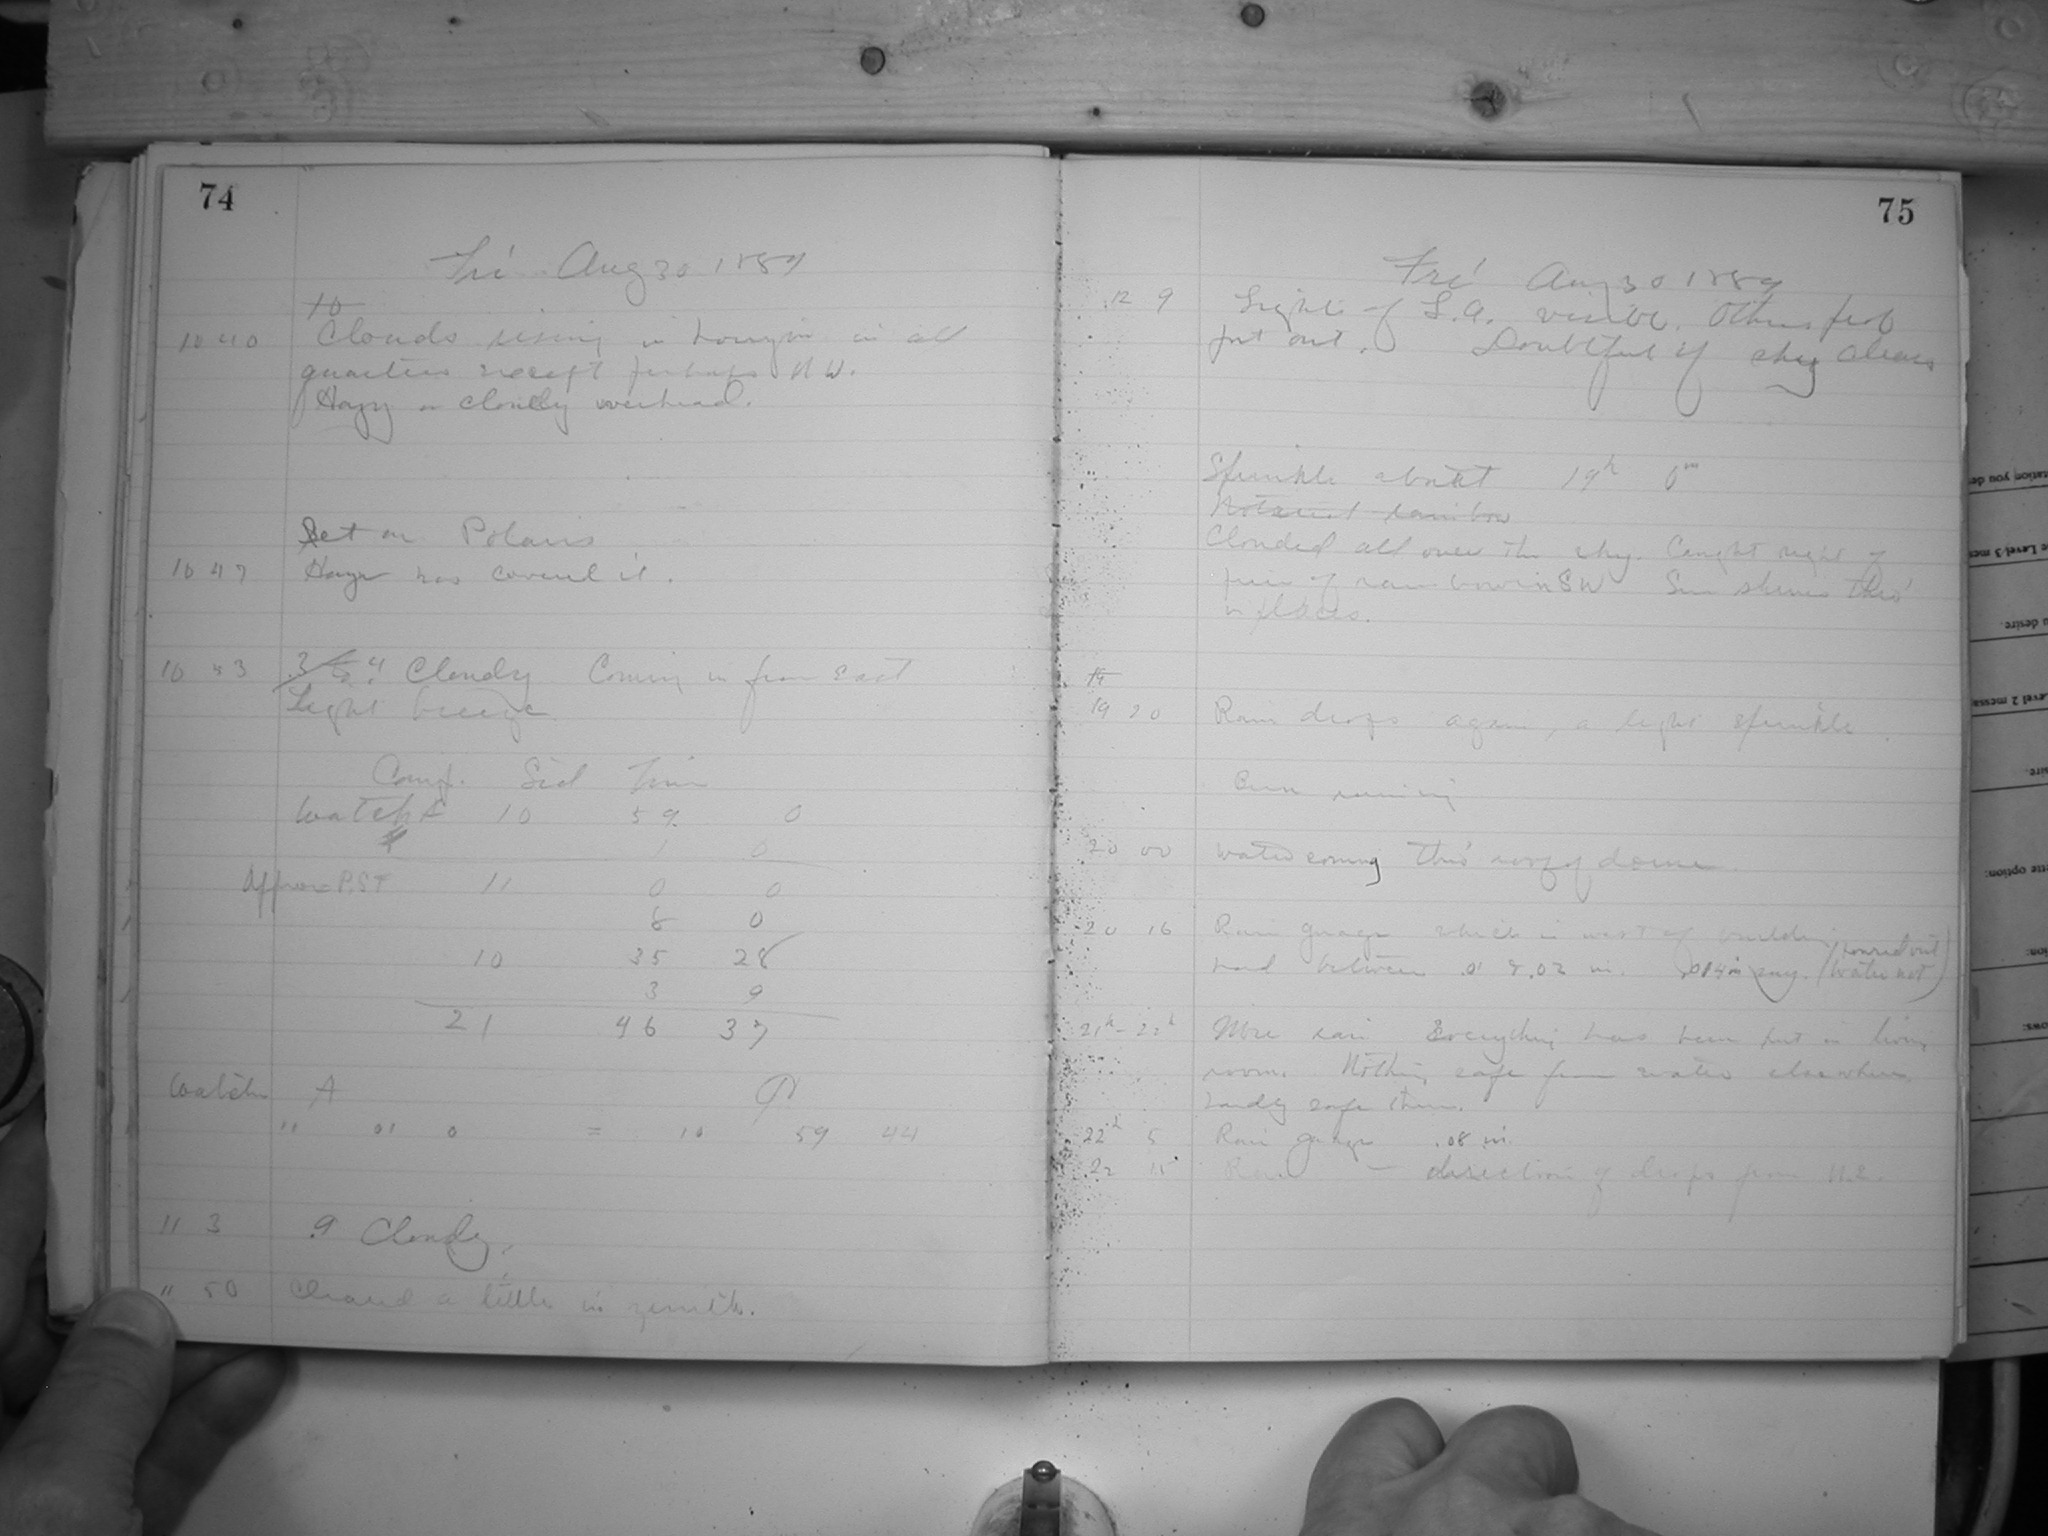 74
Fri Aug 30 1889
10
10 40 Clouds rising in horizon in all
quarters except perhaps N W.
Hazy or cloudy overhead.
Set on Polaris
10 47 Haze has covered it.
10 53 .4 Cloudy Coming in from East
Light breeze
Comp. Sid Time
Watch A 10 59 0
1 0
Approx P.S.T 11 0 0
8 0
10 35 28
3 9
21 46 37
Watch A
" 01 0 = 10 59 44
11 3 .9 Cloudy.
" 50 Cleared a little in zenith.
75
Fri Aug 30 1889
12 9 Lights of L.A. visible. Others prob
put out. Doubtful if sky clears
Sprinkle about 19h 0m
rainbow
Clouded all over the sky. Caught sight of
piece of rainbow in SW Sun shines thro'
in places.
19
19 20 Rain drops again, a light sprinkle.
Been raining
20 00 Water coming thro' roof of dome
20 16 Rain guage which is west of building
read between .01 & .02 in. .014 in say. (poured out
water not)
21h - 22h More rain Everything has been put in living
room. Nothing safe from water elsewhere
hardly safe there.
22h 5 Rain guage .08 in.
22 15 Rain — direction of drops from N.E.